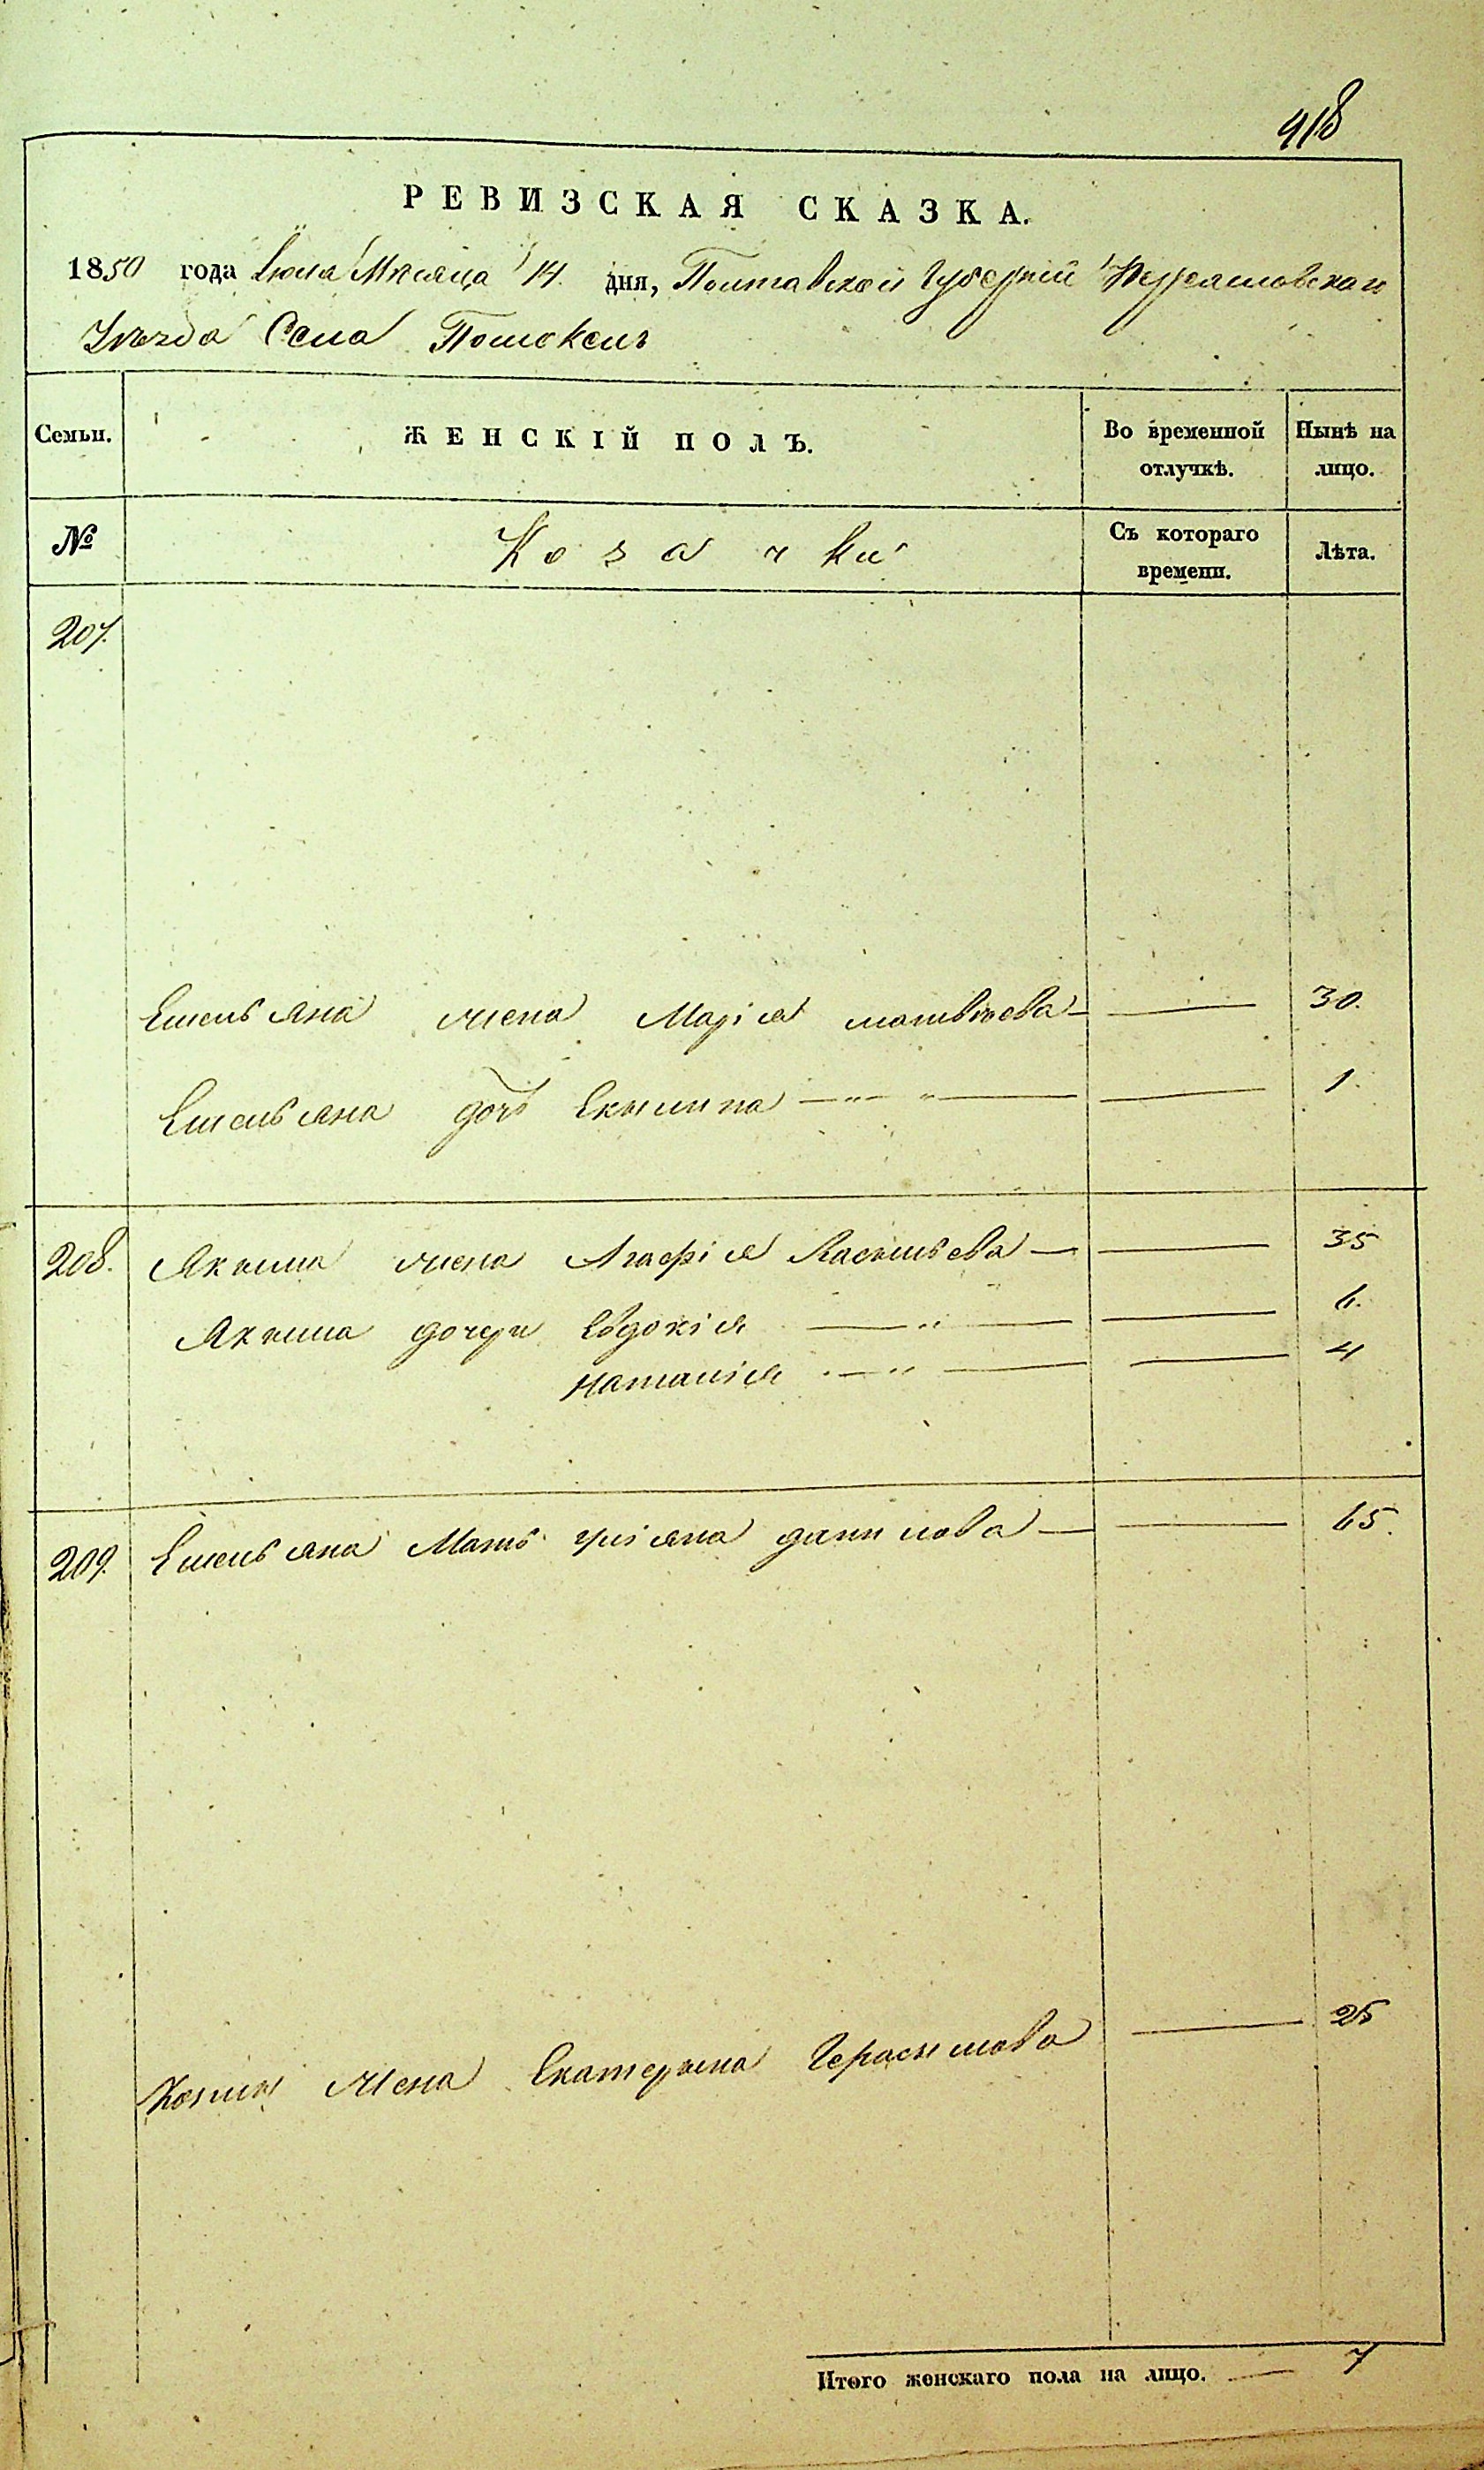 918
РЕВИЗСКАЯ СКАЗКА.
1850 года Іюля Мѣсяца 14. дня, Полтавской Губерніи Переяславскаго
Уѣзда Села
Семьи. ЖЕНСКІЙ ПОЛЪ. Во временной отлучкѣ. Нынѣ на лицо.
№ Козачки Съ котораго времени. Лѣта.
207.
Емельяна жена Марія Матвѣева 30.
Емельяна дочь 1.
208. Якима жена Агафія Васильева 35
Якима дочери Евдокія 6.
Наталія 4
209. Емельяна Мать Уліяна Данилова 65.
жена Екатерина Герасимова 25
Итого женскаго пола на лицо. 7